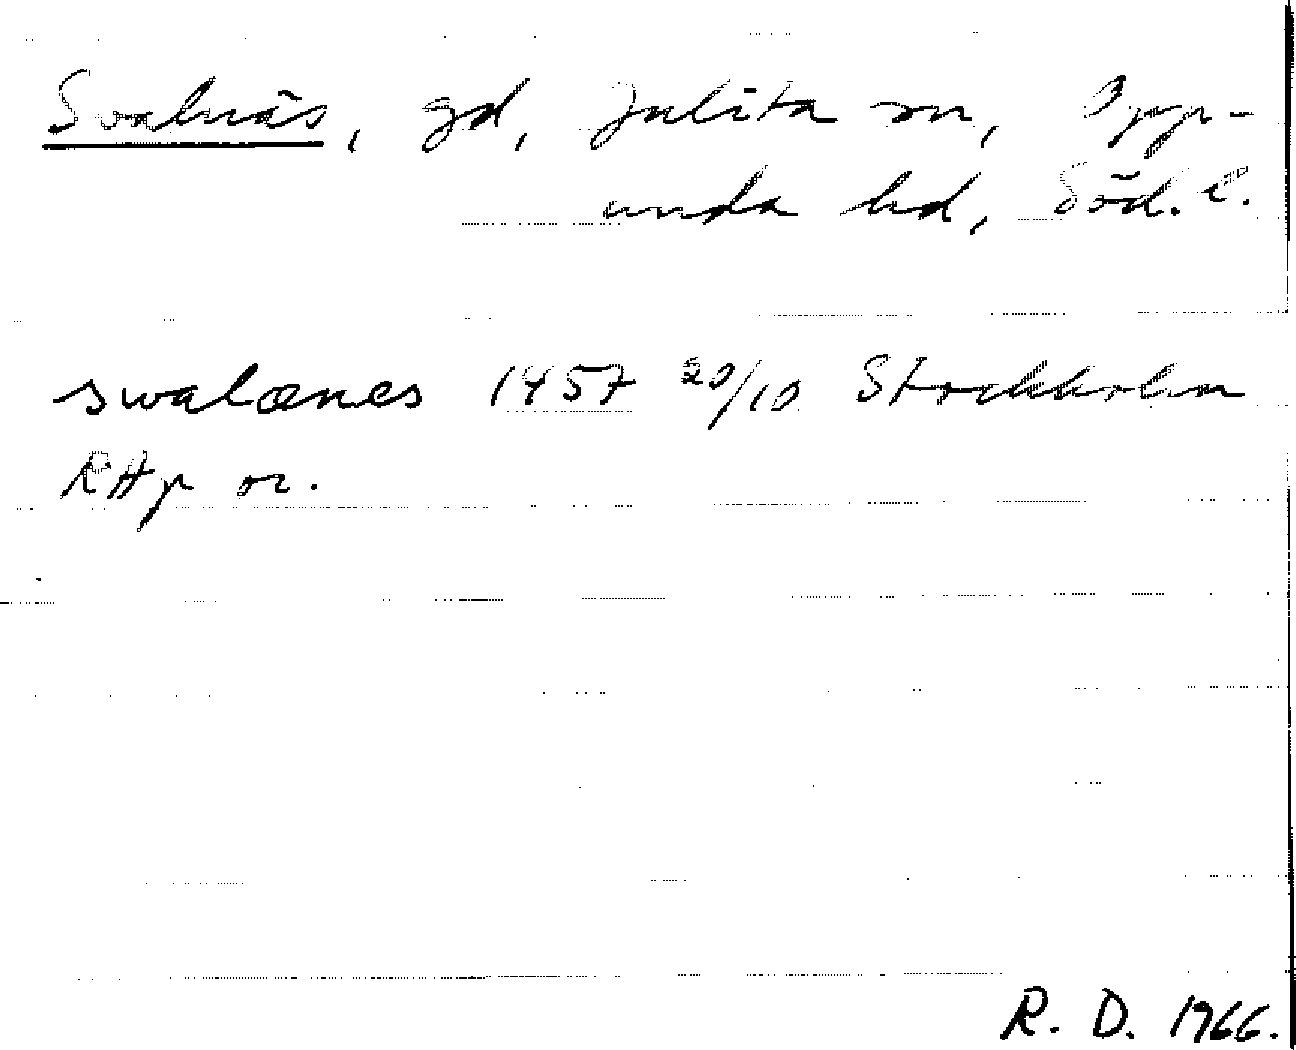 Svalnäs, gd, Julita sn, Opp-
unda hd, Söd. l.
swalænes 1457 20/10 Stockholm
RAp or.
R. D. 1966.